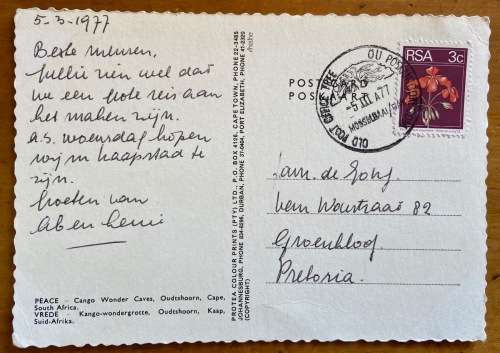 5-3-1977
Beste mensen,
Jullie zien wel dat
we een grote reis aan
het maken zijn.
a.s. woensdag hopen
wij in Kaapstad te
zijn.
Groeten van
Ab en
PEACE - Cango Wonder Caves, Oudtshoorn, Cape,
South Africa.
VREDE - Kango-wondergrotte, Oudtshoorn, Kaap,
Suid-Afrika.
PROTEA COLOUR PRINTS (PTY) LTD., P.O. BOX 4196, CAPETOWN, PHONE 22-3485
JOHANNESBURG, PHONE 834-6596, DURBAN, PHONE 31-0464, PORT ELIZABETH, PHONE 41-2320
(COPYRIGHT)
POST
POSKAARD
OLD POST OFFICE TREE
OU POS
-5 III 77
MOSSELBAAI/
RSA 3c
Fam. de Jong.
82
Groenkloof.
Pretoria.